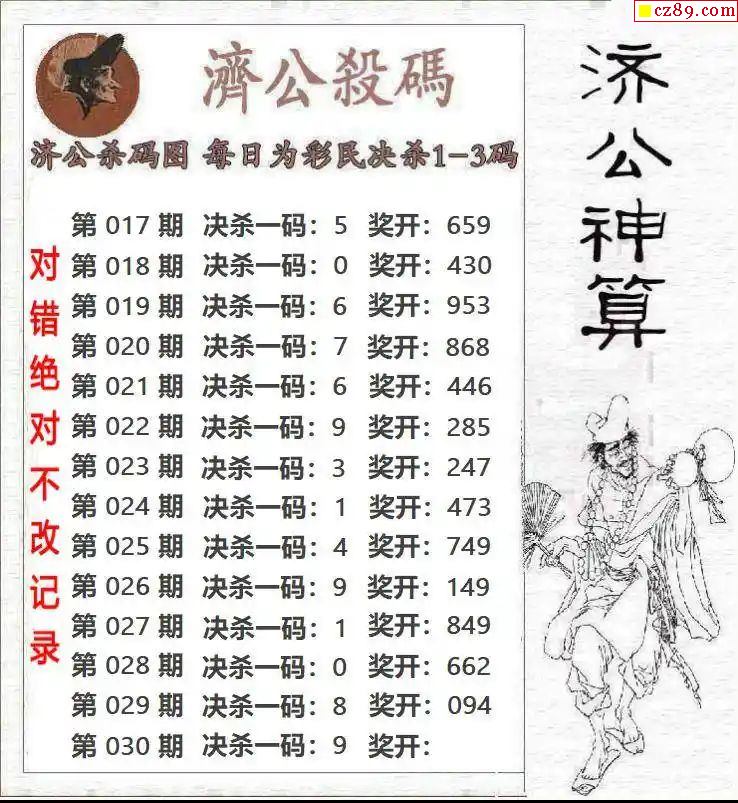 cz89.com
濟公殺碼
济公杀码图 每日为彩民决杀1-3码
第 017 期 决杀一码：5 奖开：659
第 018 期 决杀一码：0 奖开：430
第 019 期 决杀一码：6 奖开：953
第 020 期 决杀一码：7 奖开：868
第 021 期 决杀一码：6 奖开：446
第 022 期 决杀一码：9 奖开：285
第 023 期 决杀一码：3 奖开：247
第 024 期 决杀一码：1 奖开：473
第 025 期 决杀一码：4 奖开：749
第 026 期 决杀一码：9 奖开：149
第 027 期 决杀一码：1 奖开：849
第 028 期 决杀一码：0 奖开：662
第 029 期 决杀一码：8 奖开：094
第 030 期 决杀一码：9 奖开：
对错绝对不改记录
济公神算